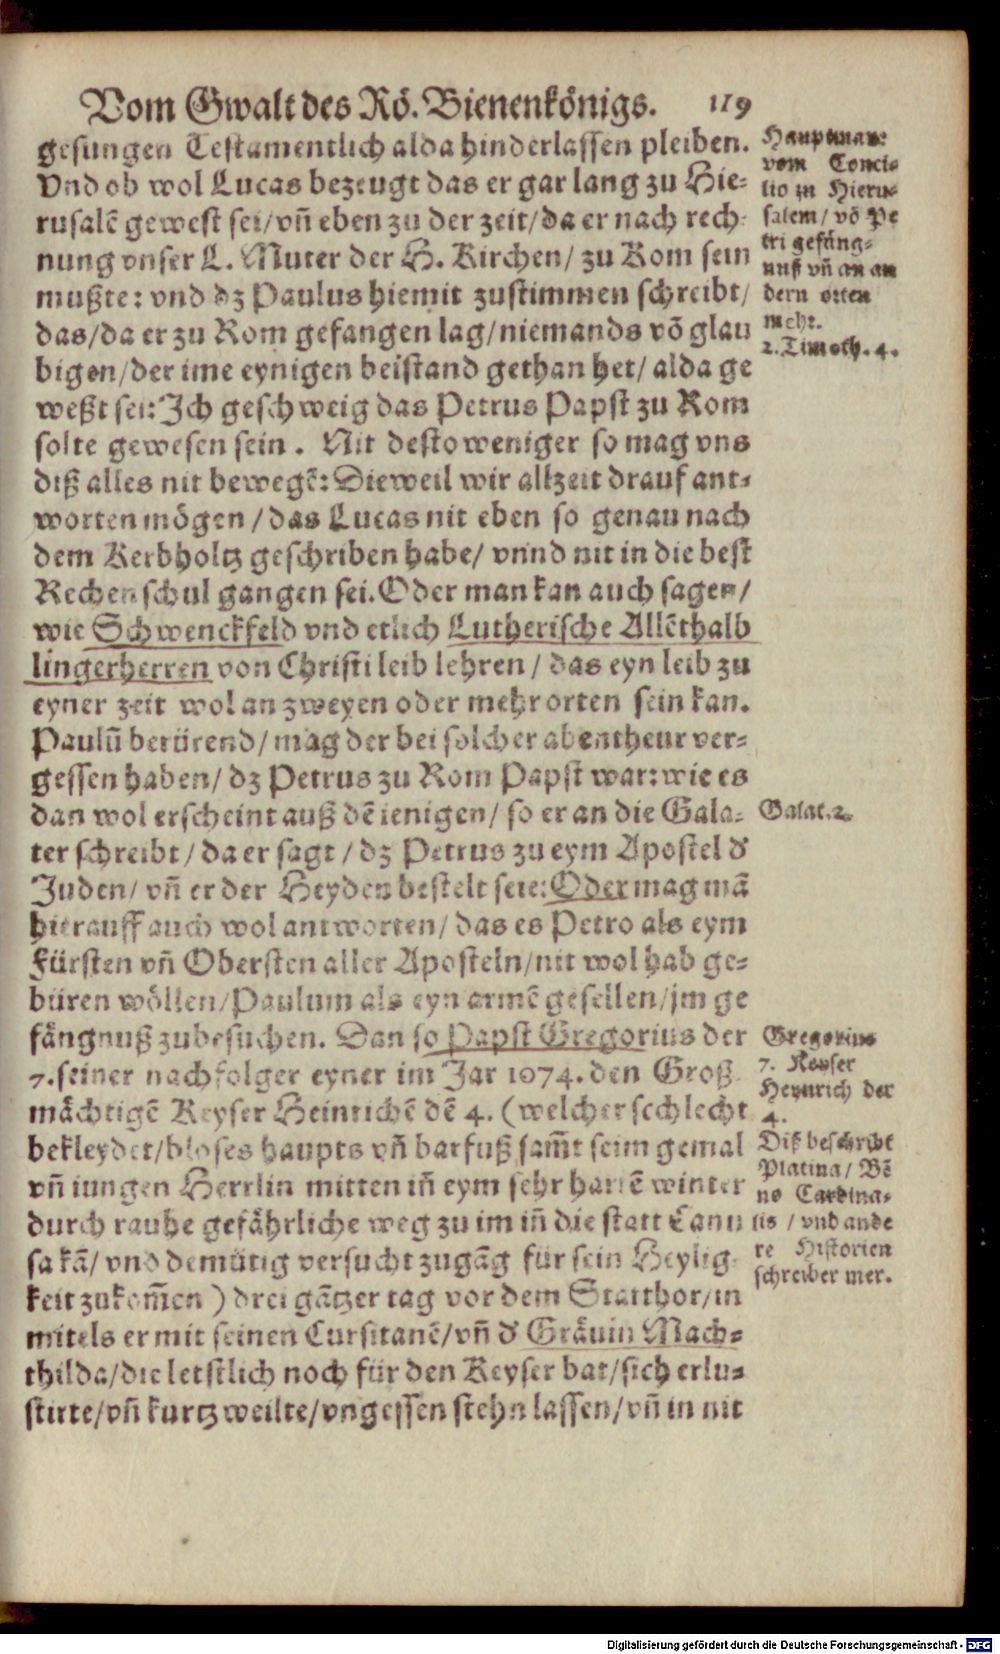 Vom Gwalt des Rö. Bienenkönigs. 119
gesungen Testamentlich alda hinderlassen pleiben.
Vnd ob wol Lucas bezeugt das er gar lang zu Hie-
rusalē gewest sei/vñ eben zu der zeit/da er nach rech-
nung vnser L. Muter der H. Kirchen/ zu Rom sein
mußte: vnd dz Paulus hiemit zustimmen schreibt/
das/da er zu Rom gefangen lag/niemands vō glau
bigen/der ime eynigen beistand gethan het/ alda ge
weßt sei: Ich geschweig das Petrus Papst zu Rom
solte gewesen sein. Nit desto weniger so mag vns
diß alles nit bewegē: Dieweil wir allzeit drauf ant-
worten mögen/das Lucas nit eben so genau nach
dem Kerbholtz geschriben habe/ vnnd nit in die best
Rechenschul gangen sei. Oder man kan auch sagen/
wie Schwenckfeld vnd etlich Lutherische Allēthalb
lingerherren von Christi leib lehren/ das eyn leib zu
eyner zeit wol an zweyen oder mehr orten sein kan.
Paulū berürend/ mag der bei solcher abentheur ver-
gessen haben/ dz Petrus zu Rom Papst war: wie es
dan wol erscheint auß dē ienigen/ so er an die Gala-
ter schreibt/ da er sagt/ dz Petrus zu eym Apostel d'
Juden/ vñ er der Heyden bestelt seie: Oder mag mā
hierauff auch wol antworten/ das es Petro als eym
Fürsten vñ Obersten aller Aposteln/nit wol hab ge-
büren wöllen/Paulum als eyn armē gesellen/jm ge
fängnuß zubesuchen. Dan so Papst Gregorius der
7. seiner nachfolger eyner im Jar 1074. den Groß-
mächtigē Keyser Heinrichē dē 4. (welcher schlecht
bekleydet/bloses haupts vñ barfuß sam̄t seim gemal
vñ iungen Herrlin mitten iñ eym sehr hartē winter
durch rauhe gefährliche weg zu im iñ die statt Canu
sa kā/ vnd demütig versucht zugāg für sein Heylig-
keit zukom̄en) drei gātzer tag vor dem Statthor/in
mitels er mit seinen Cursitanē/vñ d' Gräuin Mach-
thilda/die letstlich noch für den Keyser bat/sich erlu-
stirte/vñ kurtzweilte/vngessen stehn lassen/vñ in nit
Hauptman
vom Conci-
lio zu Hieru-
salem/ vō Pe
tri gefäng-
nuß vñ an an
dern orten
mehr.
2. Timoth. 4.
Galat. 2.
Gregorius
7. Keyser
Heynrich der
4.
Diß beschribt
Platina/ Bē
no Cardina-
lis / vnd ande
re Historien
schreiber mer.
Digitalisierung gefördert durch die Deutsche Forschungsgemeinschaft - DFG